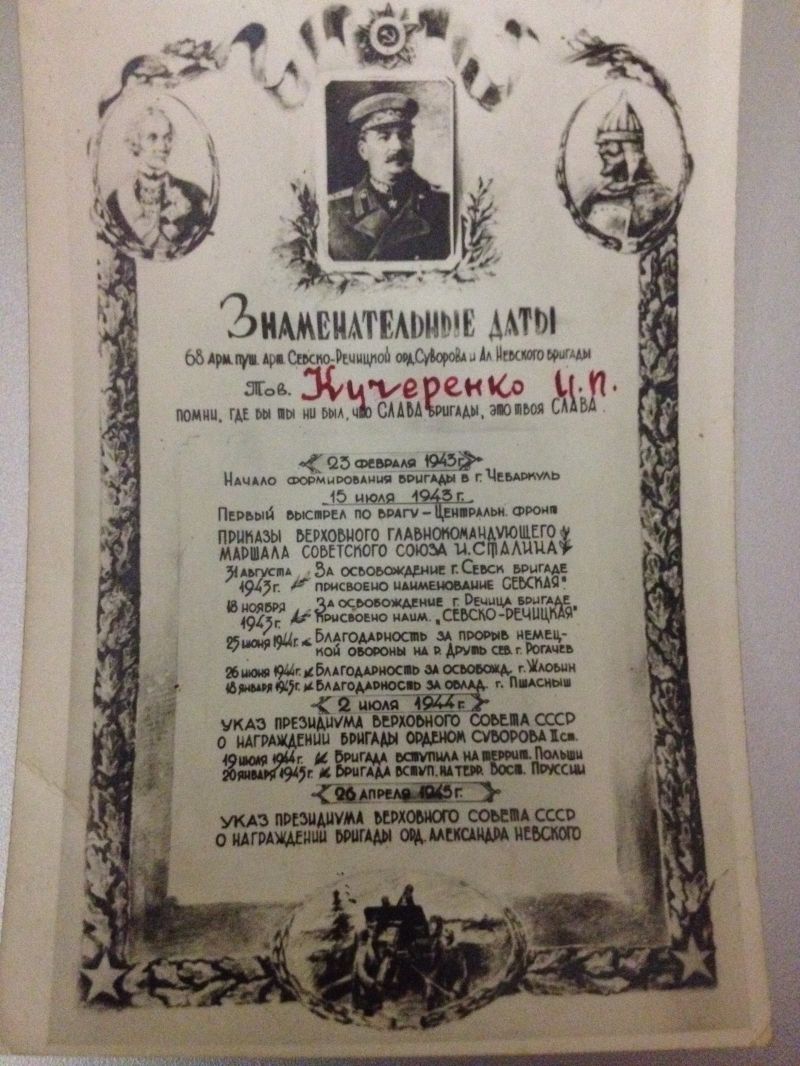 Знаменательные даты
68 арм. пуш. арт. Севско-Речицкой орд. Суворова и Ал. Невского бригады
Тов. Кучеренко И.П.
помни, где бы ты ни был, что СЛАВА бригады, это твоя СЛАВА.
23 февраля 1943 г.
Начало формирования бригады в г. Чебаркуль
15 июля 1943 г.
Первый выстрел по врагу – Центральн. фронт
Приказы Верховного Главнокомандующего
Маршала Советского Союза И. Сталина
31 августа 1943 г. За освобождение г. Севск бригаде
присвоено наименование „Севская"
18 ноября 1943 г. За освобождение г. Речица бригаде
присвоено наим. „Севско-Речицкая"
25 июня 1944 г. Благодарность за прорыв немец-
кой обороны на р. Друть сев. г. Рогачев
26 июня 1944 г. Благодарность за освобожд. г. Жлобин
18 января 1945 г. Благодарность за овлад. г. Пшасныш
2 июля 1944 г.
Указ Президиума Верховного Совета СССР
о награждении бригады орденом Суворова II ст.
19 июля 1944 г. Бригада вступила на террит. Польши
20 января 1945 г. Бригада вступ. на терр. Вост. Пруссии
26 апреля 1945 г.
Указ Президиума Верховного Совета СССР
о награждении бригады орд. Александра Невского